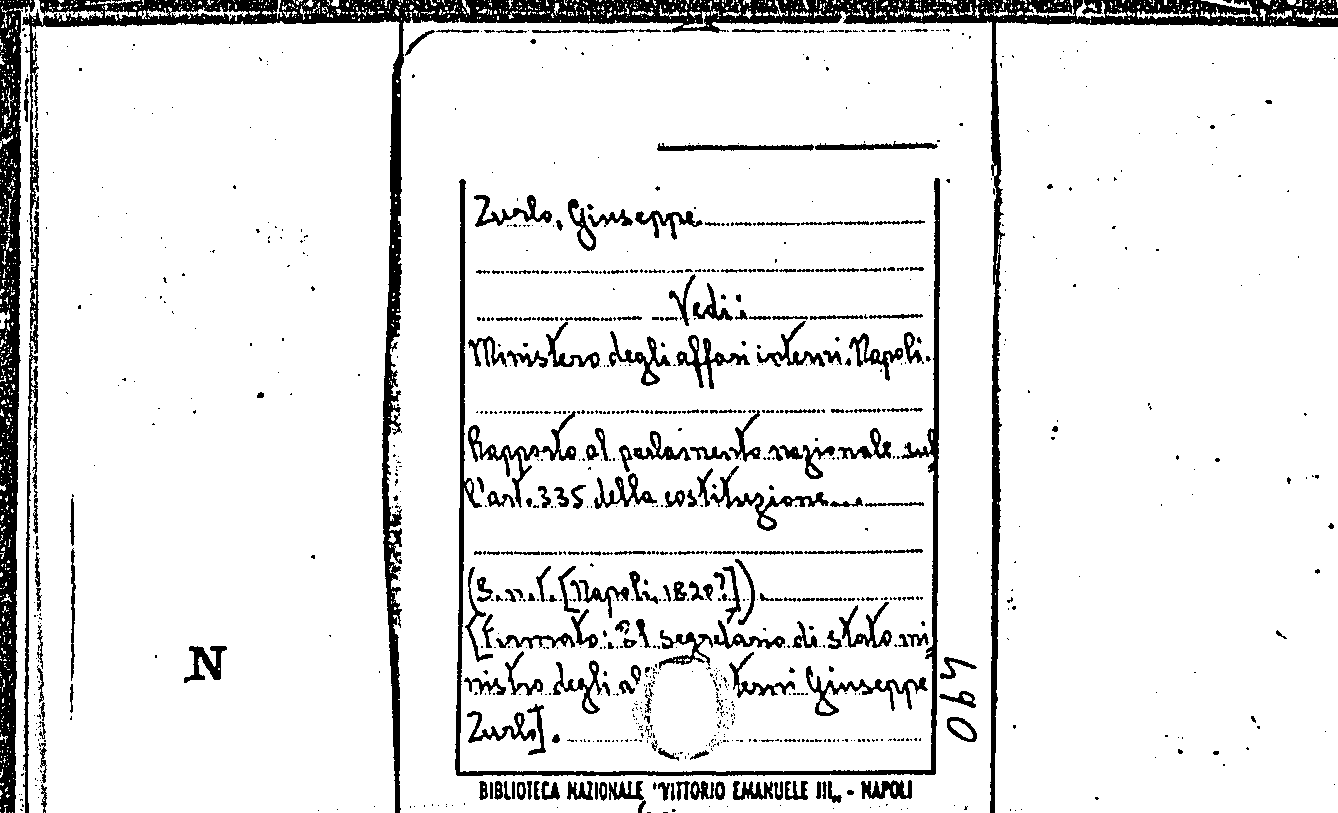 Zurlo, Giuseppe
Vedi:
Ministero degli affari interni. Napoli.
Rapporto al parlamento nazionale sul
l'art. 335 della costituzione....
(S.n.t. [Napoli, 1820?]).
[Firmato: Il segretario di stato mi
nistro degli af terni Giuseppe
Zurlo].
N
BIBLIOTECA NAZIONALE "VITTORIO EMANUELE III„ - NAPOLI